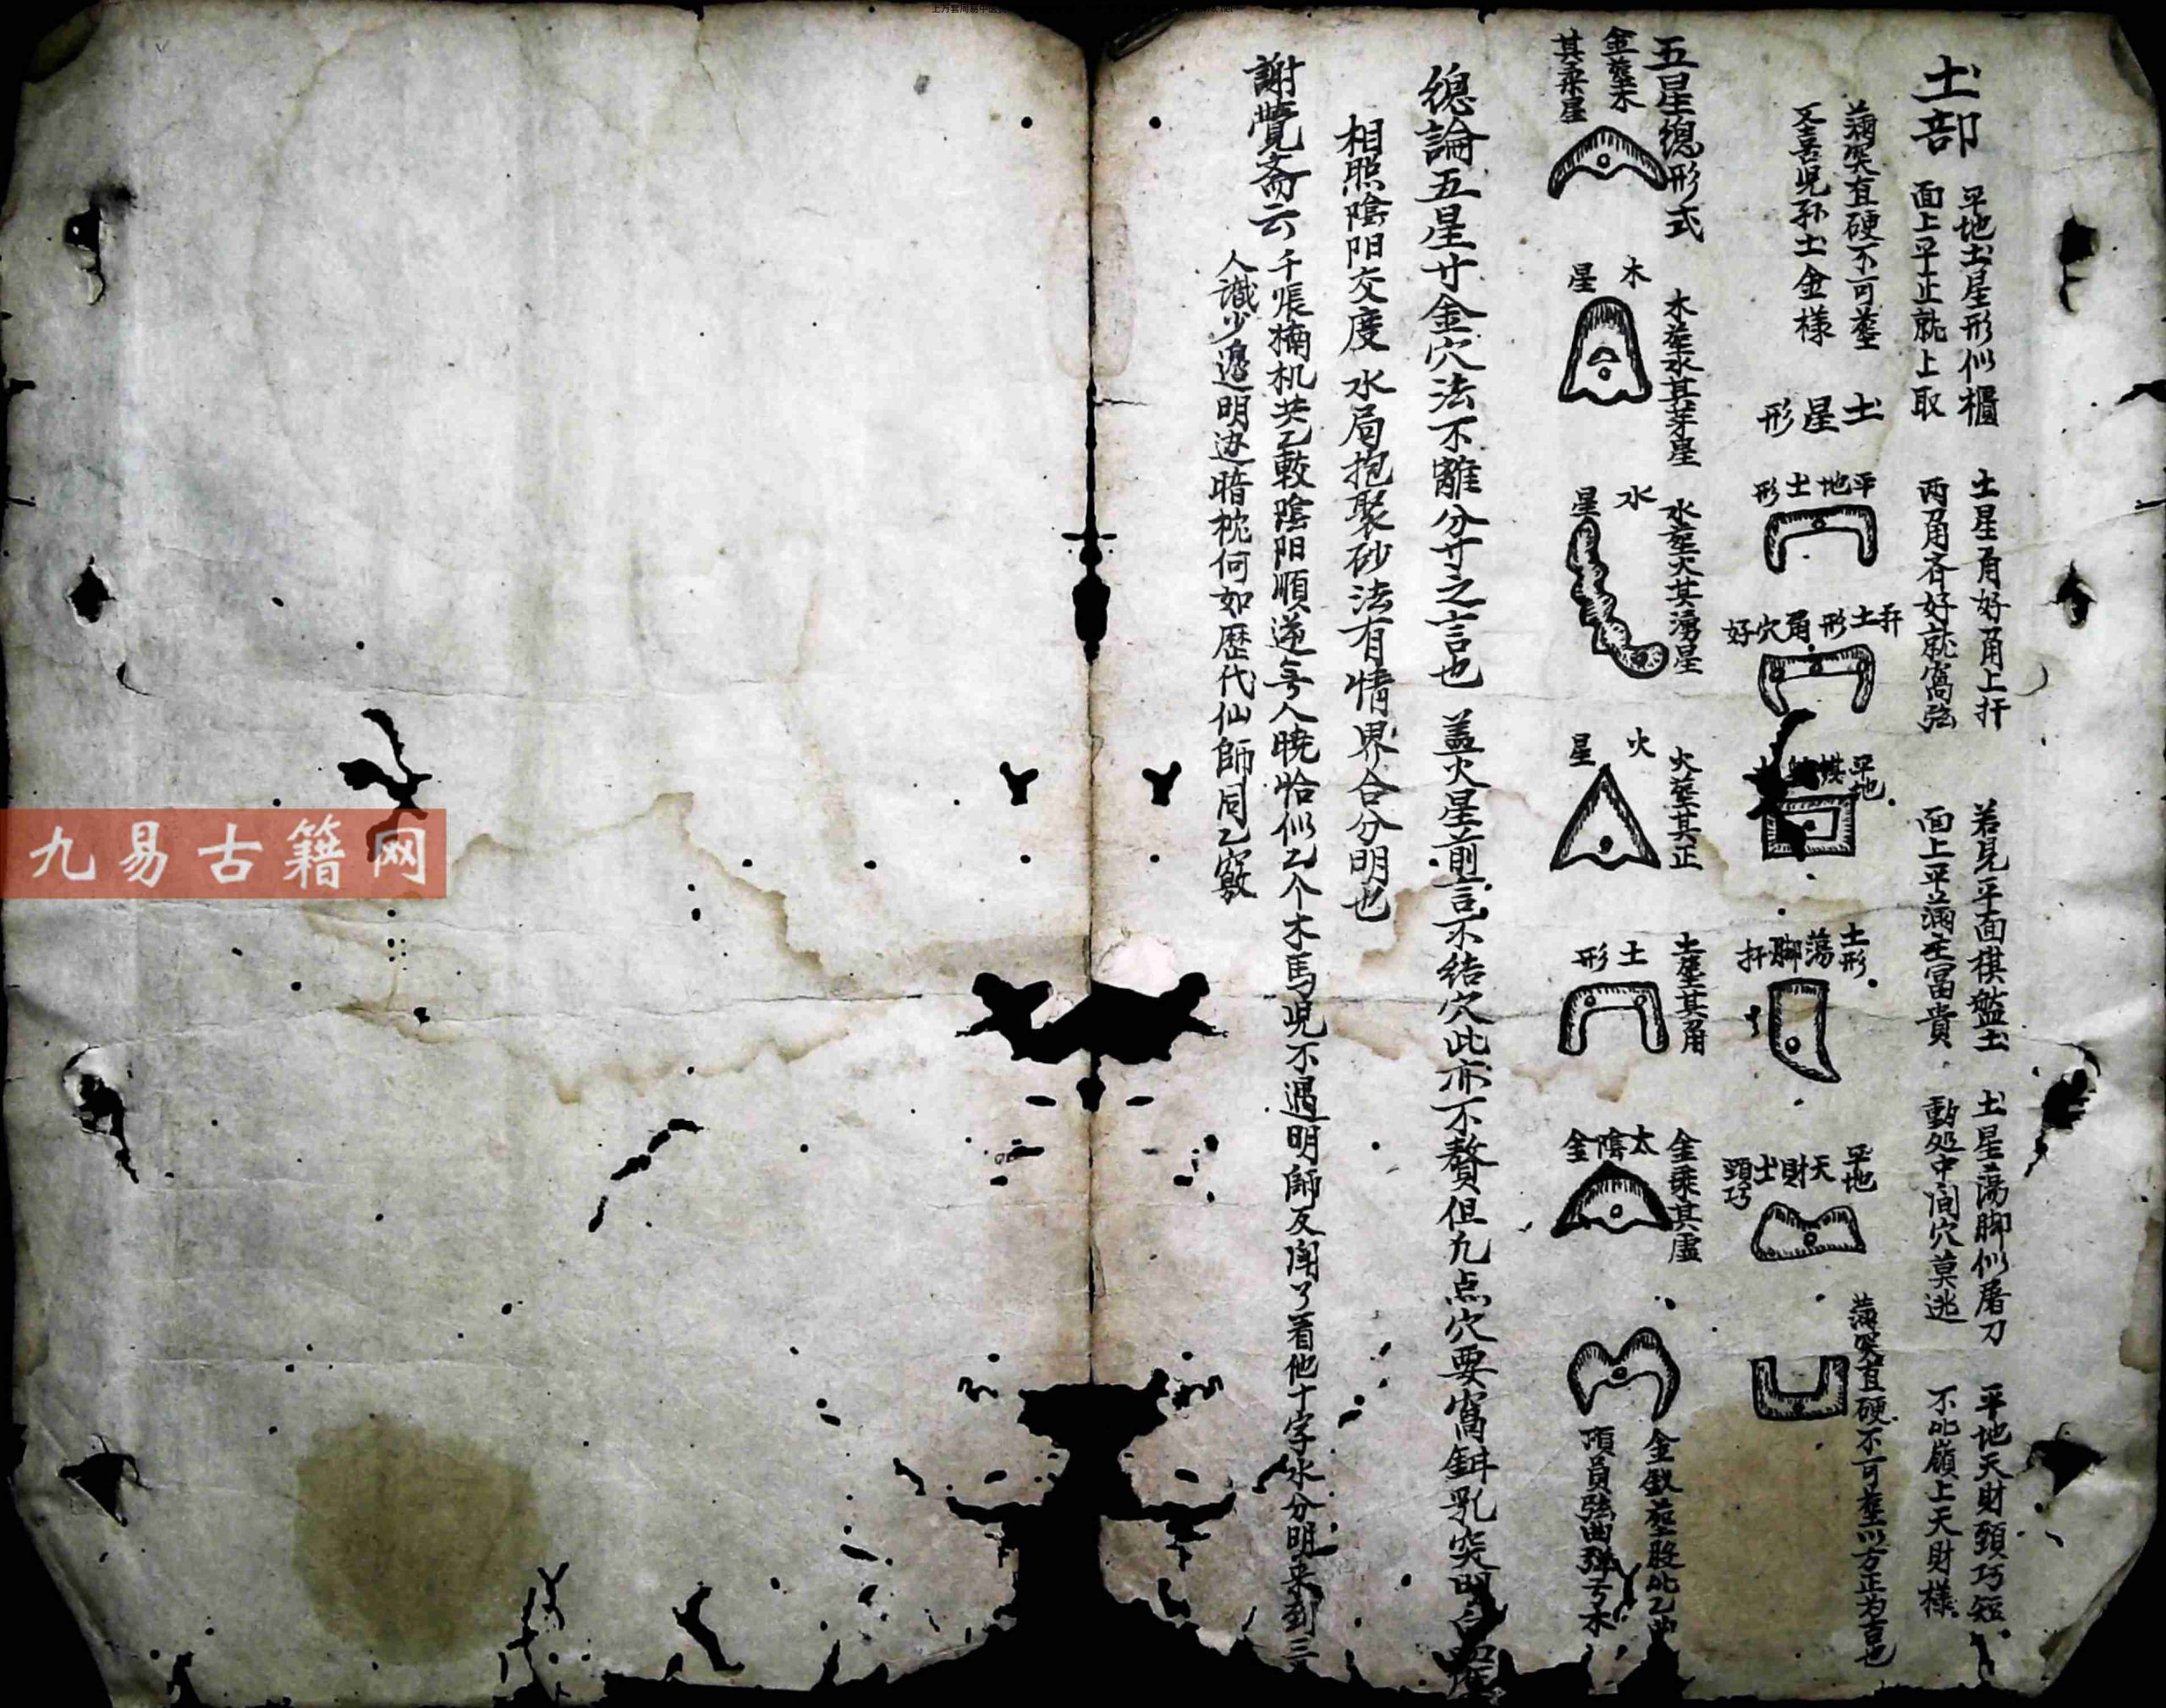 土部
平地土星形似櫃
面上平正就上取
土星角好角上扦
两角齐好就窩弦
若見平面棋盤土
面上平滿主冨貴
土星蕩脚似屠刀
動処中间穴莫逃
平地天財頭巧短
不比嶺上天財樣
滿突直硬不可塟
又喜児孙土金樣
土星形
平地土形
土形角穴好
平地
棋
土形蕩脚扦
平地天財土頭巧
滿突直硬不可塟以方正为吉也
五星總形式
金塟水
其柔星
木星
木塟水其芽星
水星
水塟火其湧星
火星
火塟其正
土形
土塟其角
太陰金
金乘其虛
金釵塟股比乙曲
頂員弦曲
總論五星廿金穴法不離分廿之言也 盖火星前言不结穴此亦不贅但凢点穴要窩鉗乳突明白
相照陰阳交度水局抱聚砂法有情界合分明也
謝覺斎云
千張楠机共乙較陰阳順逆号人曉恰似乙个木馬児不遇明師反闹了看他十字水分明来到三
人識少邉明边暗枕何如歷代仙師同乙竅
九易古籍网